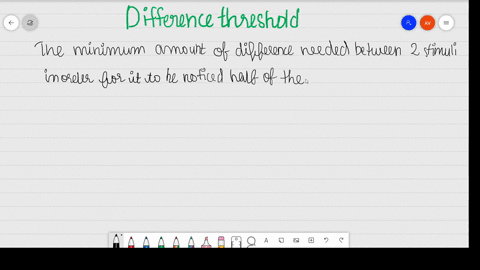 Difference threshold
The minimum amount of difference needed between 2 stimuli
inorder for it to be noticed half of the